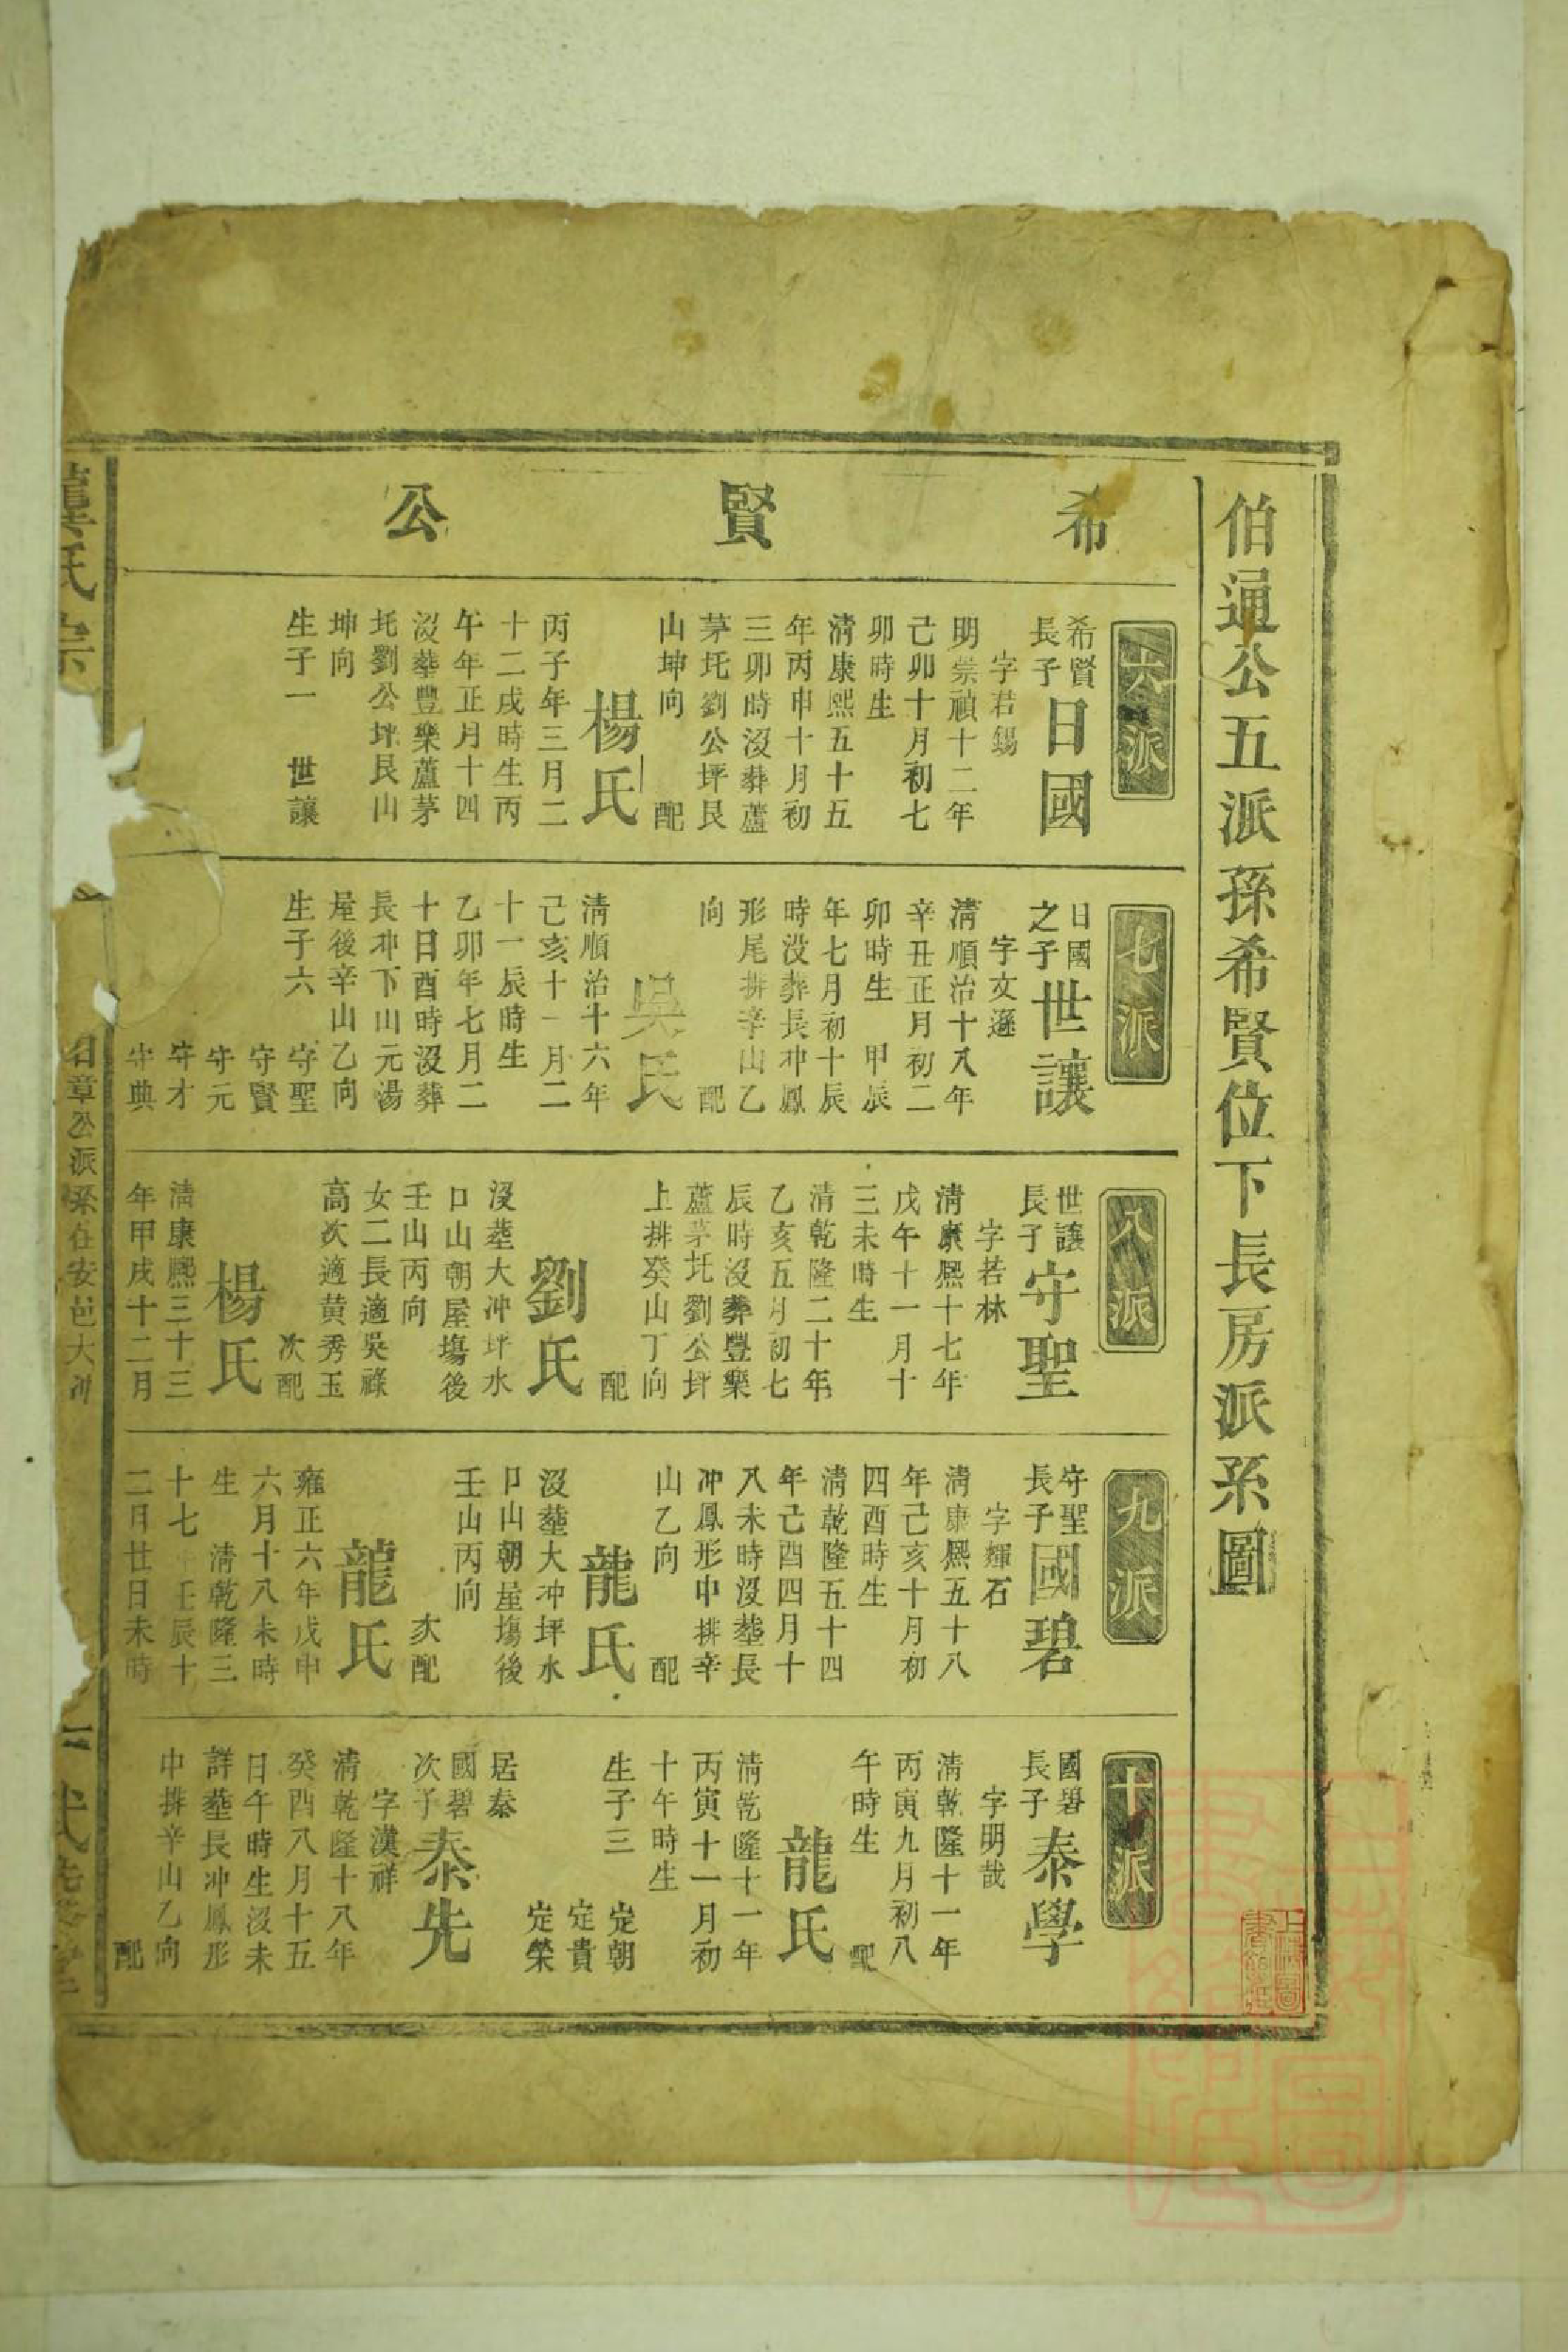 伯通公五派孫希賢位下長房派系圖
希賢公
六派
希賢
長子
日國
字君錫
明崇禎十二年
己卯十月初七
卯時生
清康熙五十五
年丙申十月初
三卯時沒葬蘆
茅圫劉公坪艮
山坤向
配
楊氏
丙子年三月二
十二戌時生丙
午年正月十四
沒塟豐樂蘆茅
圫劉公坪艮山
坤向
生子一 世讓
七派
日國
之子
世讓
字文遜
清順治十八年
辛丑正月初二
卯時生 甲辰
年七月初十辰
時没葬長冲鳳
形尾排辛山乙
向
配
吳氏
清順治十六年
己亥十一月二
十一辰時生
乙卯年七月二
十日酉時沒葬
長冲下山元湯
屋後辛山乙向
生子六 守聖
守賢
守元
守才
守典
八派
世讓
長子
守聖
字若林
清康熙十七年
戊午十一月十
三未時生
清乾隆二十年
乙亥五月初七
辰時沒葬豐樂
蘆茅圫劉公坪
上排癸山丁向
配
劉氏
沒塟大冲坪水
口山朝屋塲後
壬山丙向
女二長適吳祿
高次適黄秀玉
次配
楊氏
清康熙三十三
年甲戌十二月
九派
守聖
長子
國碧
字輝石
清康熙五十八
年己亥十月初
四酉時生
清乾隆五十四
年己酉四月十
八未時沒塟長
冲鳳形中排辛
山乙向
配
龍氏
沒塟大冲坪水
口山朝屋塲後
壬山丙向
次配
龍氏
雍正六年戊申
六月十八未時
生 清乾隆三
十七 壬辰十
二月廿日未時
十派
國碧
長子
泰學
字明哉
清乾隆十一年
丙寅九月初八
午時生
配
龍氏
清乾隆十一年
丙寅十一月初
十午時生
生子三 定朝
定貴
定榮
居泰
國碧
次子
泰先
字漢祥
清乾隆十八年
癸酉八月十五
日午時生沒未
詳塟長冲鳳形
中排辛山乙向
配
龔氏宗
章公派系在安邑大冲
上海圖書館藏